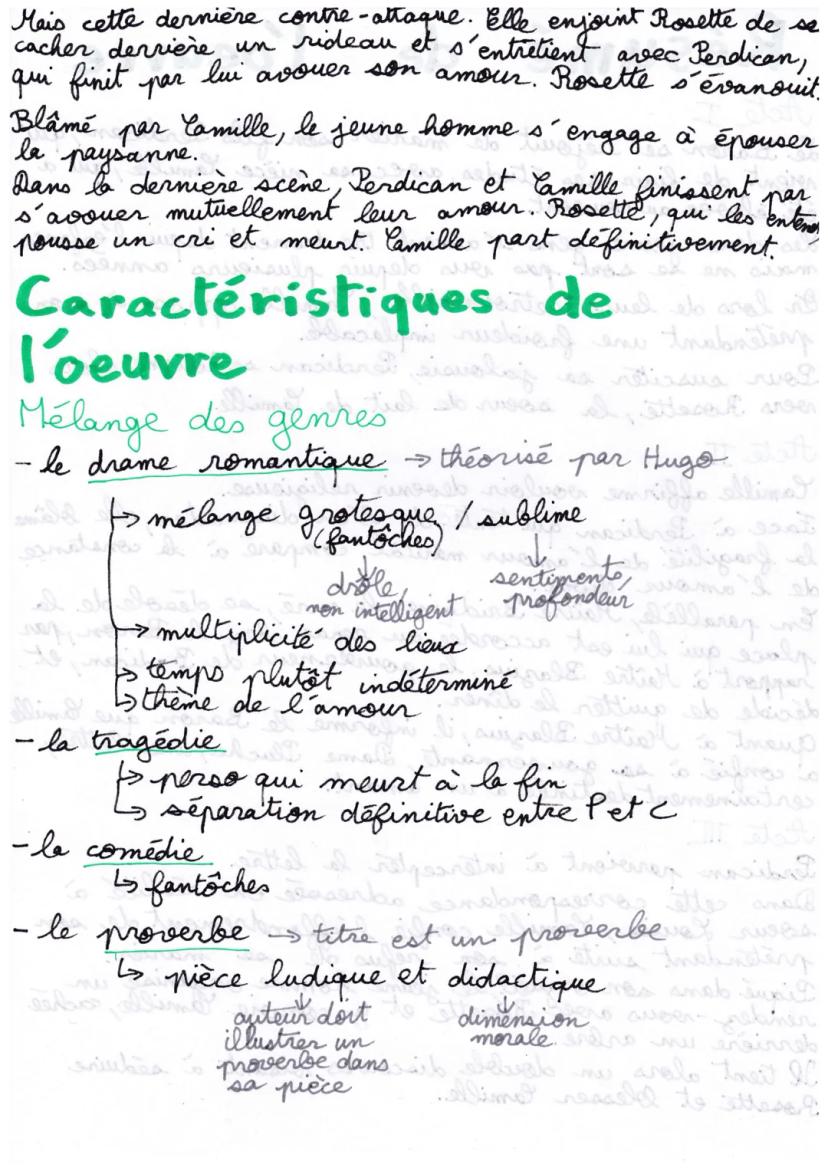 Mais cette dernière contre-attaque. Elle enjoint Rosette de se
cacher derrière un rideau et s'entretient avec Perdican,
qui finit par lui avouer son amour. Rosette s'évanouit.
Blâmé par Camille, le jeune homme s'engage à épouser
la paysanne.
Dans la dernière scène, Perdican et Camille finissent par
s'avouer mutuellement leur amour. Rosette, qui les entend
pousse un cri et meurt. Camille part définitivement.
Caractéristiques de
l'oeuvre
Mélange des genres
- le drame romantique → théorisé par Hugo
↳ mélange grotesque / sublime
(fantôches)
drôle, sentiments,
non intelligent profondeur
→ multiplicité des lieux
↳ temps plutôt indéterminé
↳ thème de l'amour
- la tragédie
↳ perso qui meurt à la fin
↳ séparation définitive entre P et C
- la comédie
↳ fantôches
- le proverbe → titre est un proverbe
↳ pièce ludique et didactique
auteur doit dimension
illustrer un morale
proverbe dans
sa pièce